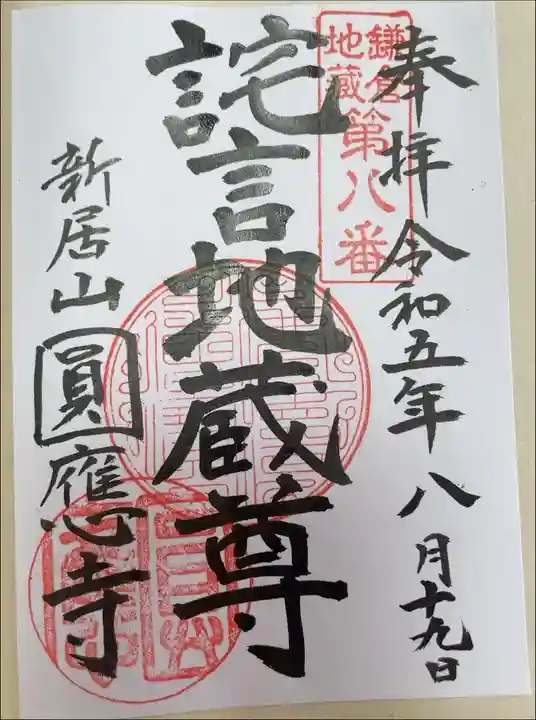 奉拝 令和五年八月十九日
鎌倉
地蔵
第八番
詫言地蔵尊
新居山圓應寺